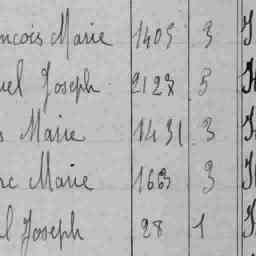 ncois Marie 1405 3
uel Joseph 2128 5
s Marie 1431 3
rc Marie 1663 3
l Joseph 28 1